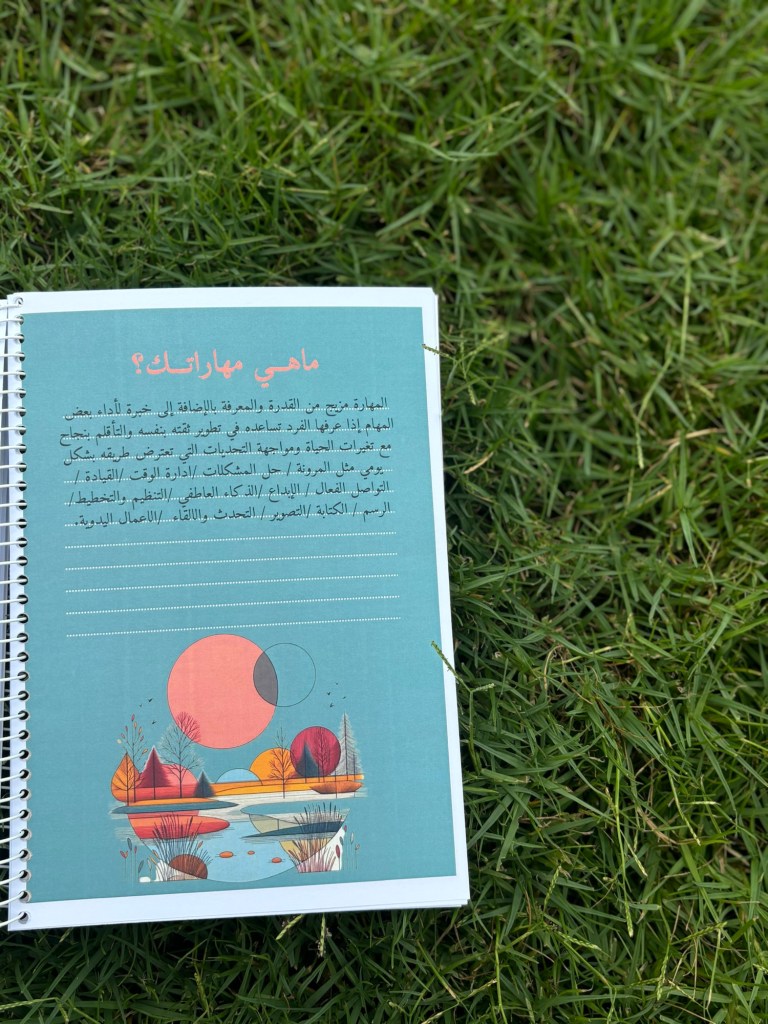 ماهي مهاراتك؟
المهارة مزيج من القدرة والمعرفة بالإضافة إلى خبرة لأداء بعض
المهام إذا عرفها الفرد تساعده في تطوير ثقته بنفسه والتأقلم بنجاح
مع تغيرات الحياة ومواجهة التحديات التي تعترض طريقه بشكل
يومي مثل المرونة / حل المشكلات /ادارة الوقت /القيادة /
التواصل الفعال / الإبداع /الذكاء العاطفي /التنظيم والتخطيط/
الرسم / الكتابة /التصوير / التحدث والالقاء /الاعمال اليدوية.